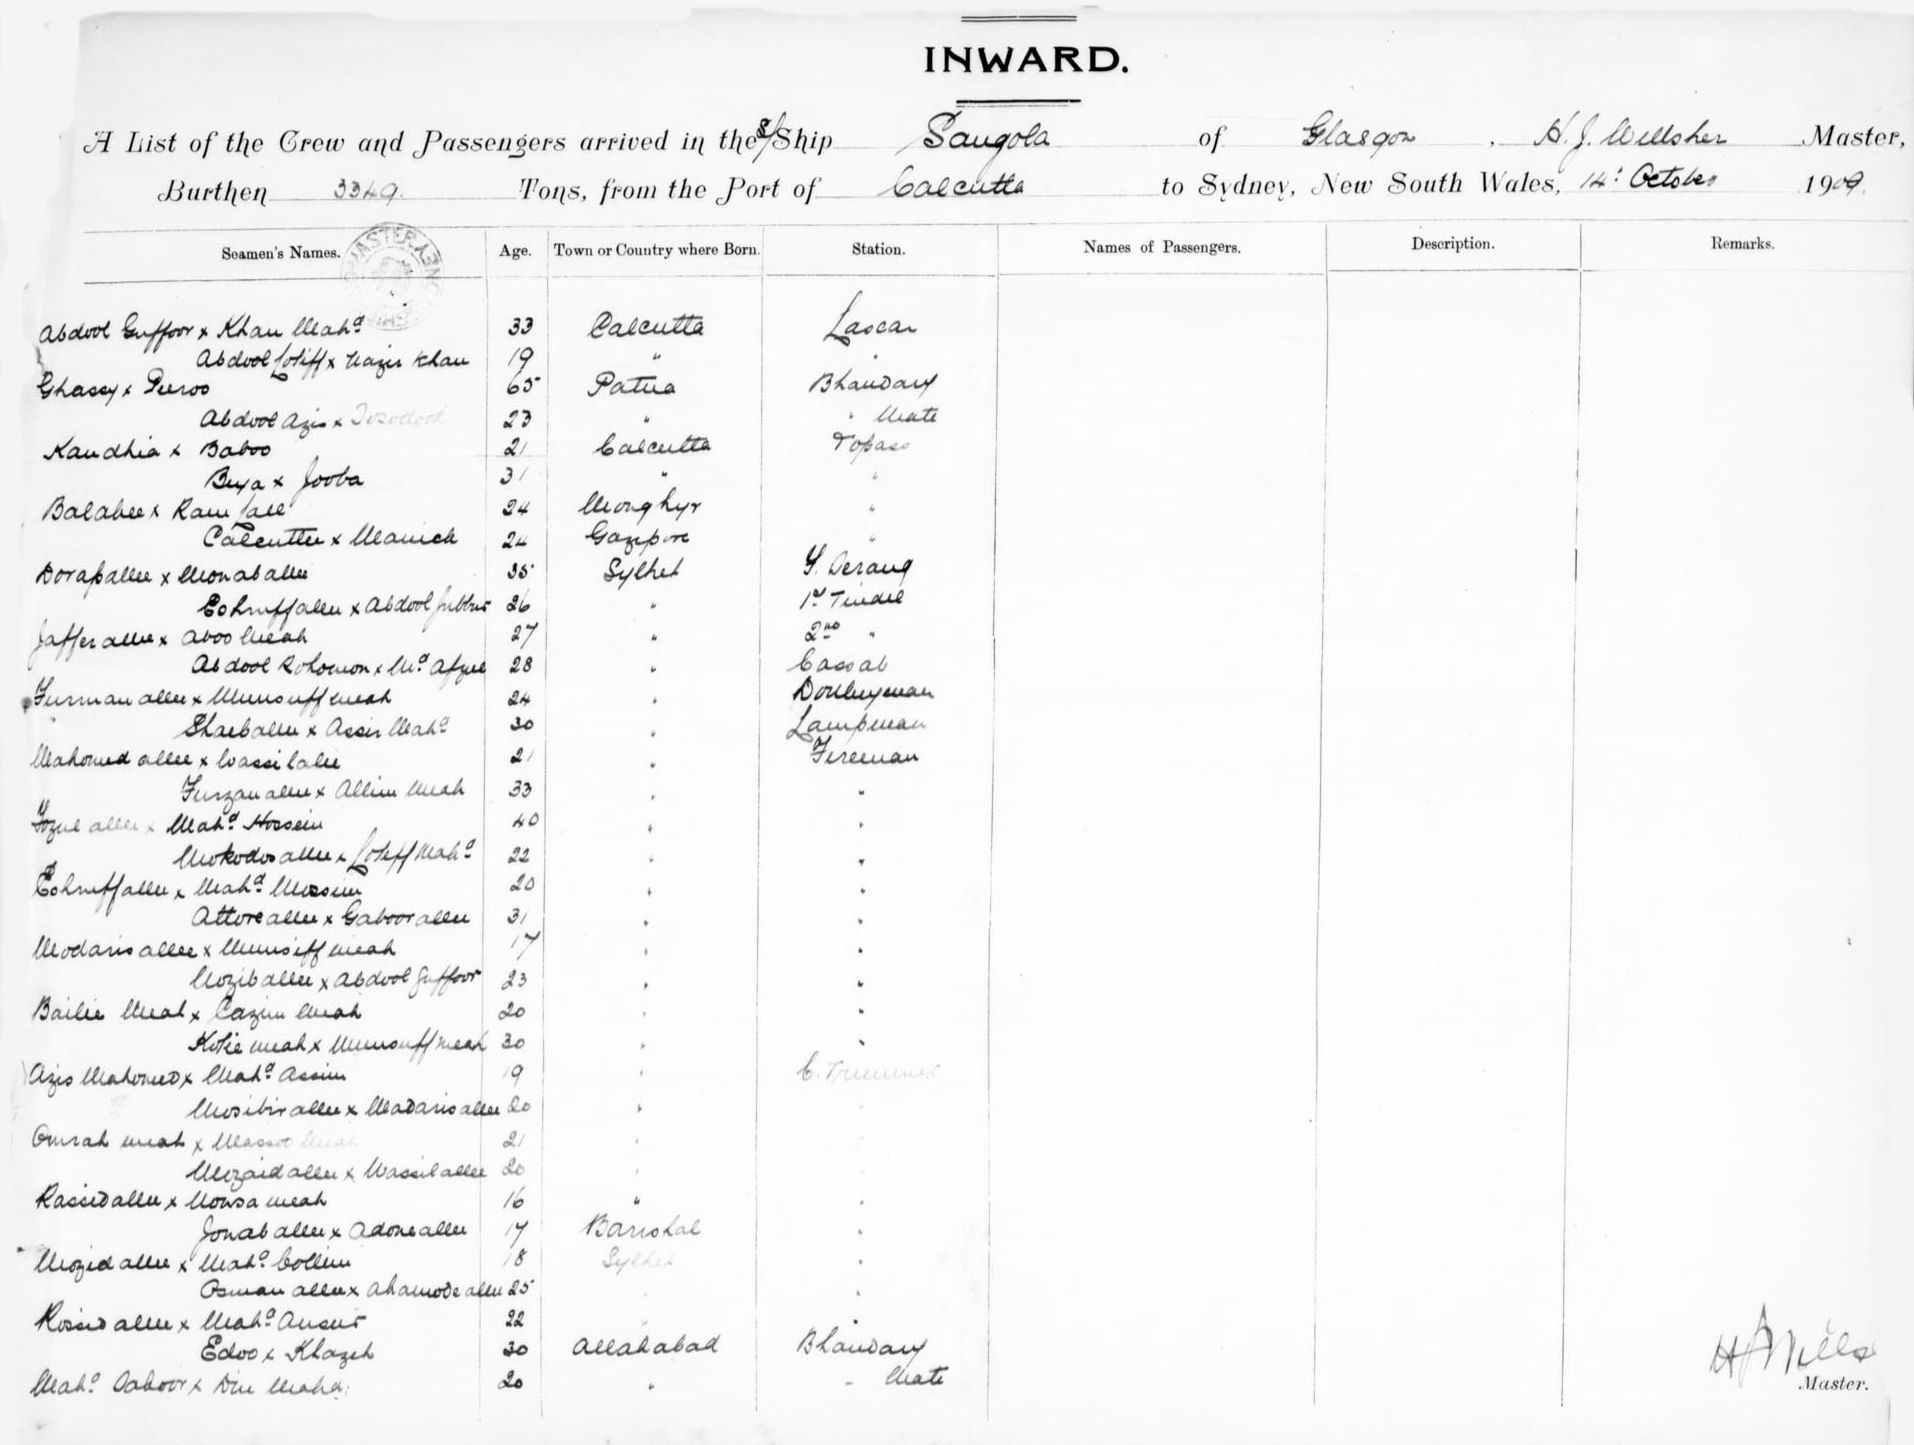 INWARD.
A List of the Crew and Passengers arrived in the S/Ship Sangola of Glasgow, H. J. Willsher Master,
Burthen 3349. Tons, from the Port of Calcutta to Sydney, New South Wales, 14th October 1909.
Seamen's Names. Age. Town or Country where Born. Station. Names of Passengers. Description. Remarks.
Abdool Guffoor x Khan Mahd 33 Calcutta Lascar
Abdool Lotiff x Nazir Khan 19 " "
Ghassy x Peeroo 65 Patna Bhandary
Abdool Azis x 23 " " Mate
Kandhia x Baboo 21 Calcutta Topass
Buya x Jooba 31 " "
Balabee x Ram Lall 24 Monghyr "
Calcuttee x Manick 24 Gazipore "
Dorapallee x Monaballee 35 Sylhet F. Serang
Eshruffallee x Abdool Jubbur 26 " 1st Tindel
Jafferallee x Aboo Meah 27 " 2nd "
Abdool Rohomon x Md Afzul 28 " Cassab
Furmanallee x Munsuff Meah 24 " Donkeyman
Shaeballee x Assir Mahd 30 " Lampman
Mahomed allee x Wassilalee 21 " Fireman
Furzanallee x Allim Meah 33 " "
Fozul allee x Mahd Hossein 40 " "
Mokodosallee x Lotiff Mahd 22 " "
Eshruffallee x Mahd 20 " "
Attoreallee x Gaboorallee 31 " "
Modarisallee x Munsiff Meah 17 " "
Moziballee x Abdool Guffoor 23 " "
Bailie Meah x Cazim Meah 20 " "
Kotie Meah x Munsuff Meah 30 " "
Azis Mahomed x Mahd Assim 19 " C. Trimmer
Mosibirallee x Madarisallee 20 "
Omrah Meah x Massot Meah 21 "
Mozaidallee x Wassilallee 20 "
Rassidallee x Monsa Meah 16 " "
Jonaballee x Adoneallee 17 Barishal "
Mozid allee x Mahd Collim 18 Sylhet "
Osman allee x Ahamodeallee 25 " "
Rossid allee x Mahd Ansur 22 " "
Edoo x Khazeh 30 Allahabad Bhandary
Mahd Saboor x Din Mahd 20 " " Mate
Master.